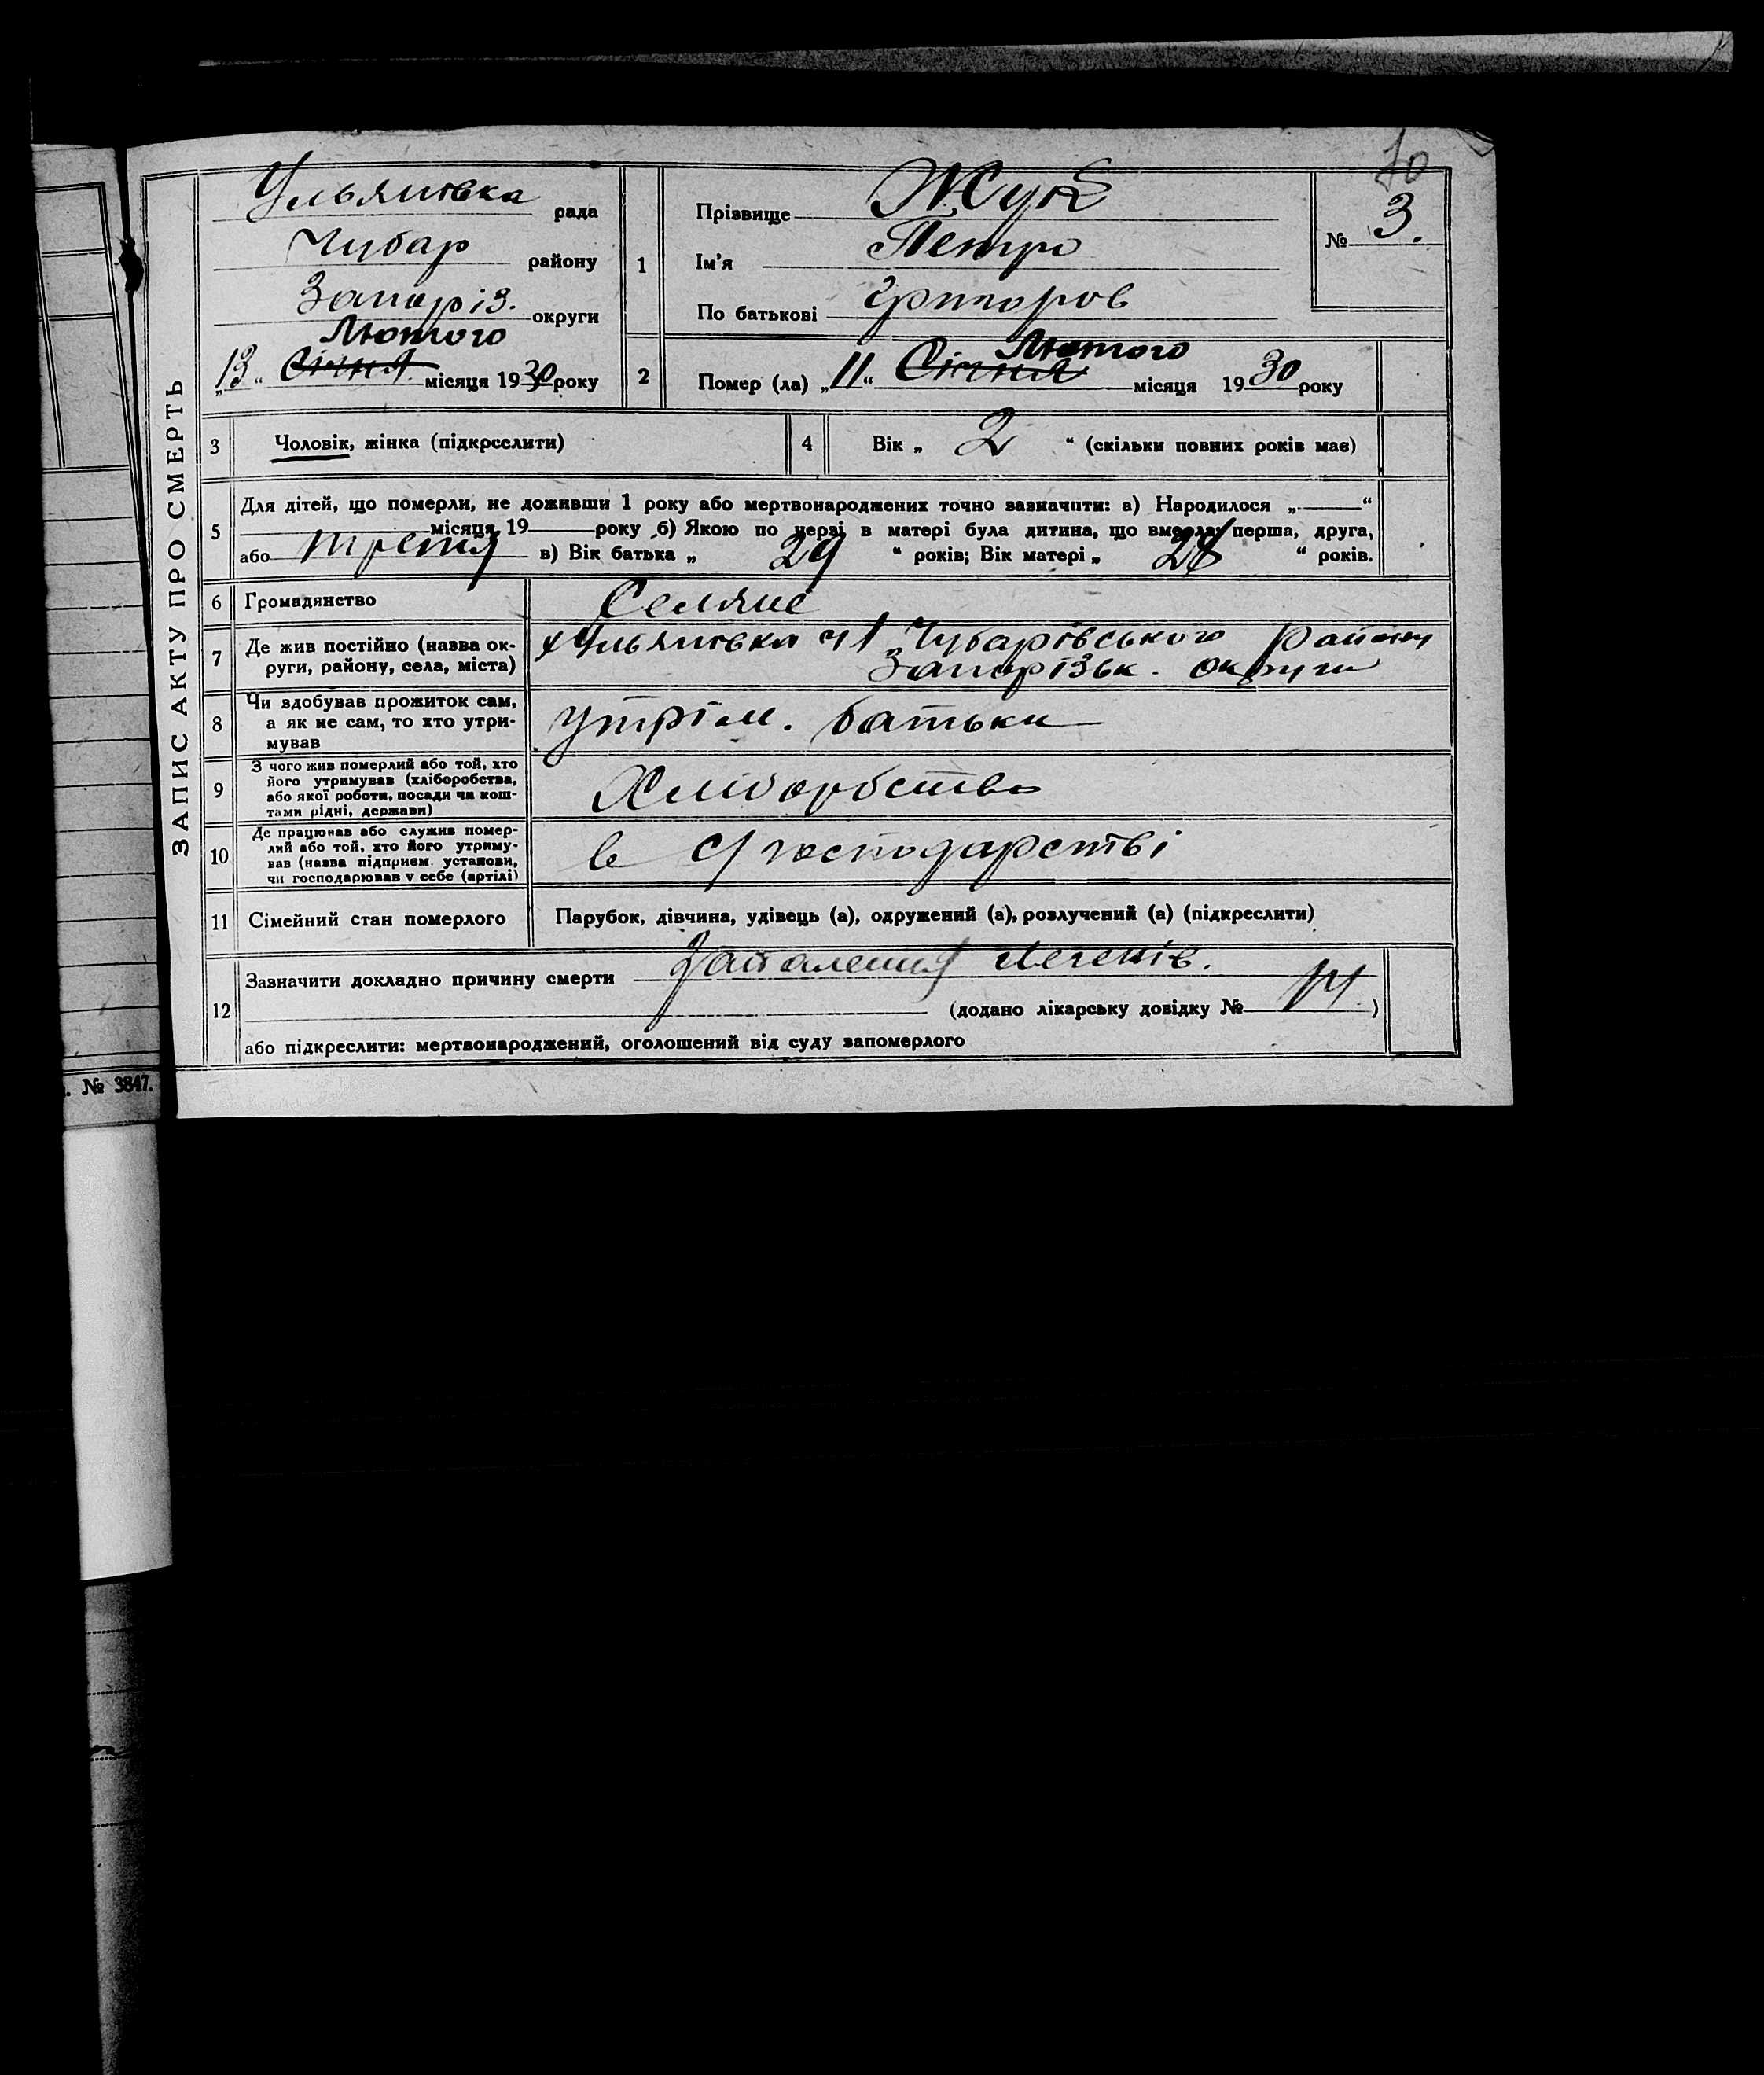 70
ЗАПИС АКТУ ПРО СМЕРТЬ
Ульянівка рада
Чубар району
Запоріз. округи
Лютого
„13“ Січня місяця 1930 року
1
Прізвище Жук
Ім'я Петро
По батькові Григоров
№ 3.
2
Лютого
Помер (ла) „11“ Січня місяця 1930 року
3 Чоловік, жінка (підкреслити)
4 Вік „ 2 “ (скільки повних років має)
5 Для дітей, що померли, не доживши 1 року або мертвонароджених точно зазначити: а) Народилося „ “
місяця 19 року б) Якою по черзі в матері була дитина, що вмерла: перша, друга,
або третя в) Вік батька „ 29 “ років; Вік матері „ 28 “ років.
6 Громадянство Селяне
7 Де жив постійно (назва ок-
руги, району, села, міста)
Ульянівка ч1 Чубарівського Району
Запорізьк. округи
8 Чи здобував прожиток сам,
а як не сам, то хто утри-
мував
утрім. батьки
9 З чого жив померлий або той, хто
його утримував (хліборобства,
або якої роботи, посади чи кош-
тами рідні, держави)
Хліборобство
10 Де працював або служив помер-
лий або той, хто його утриму-
вав (назва підприєм. установи,
чи господарював у себе (артілі)
в с/господарстві
11 Сімейний стан померлого Парубок, дівчина, удівець (а), одружений (а), розлучений (а) (підкреслити)
12 Зазначити докладно причину смерти Запалення Легенів.
(додано лікарську довідку № )
або підкреслити: мертвонароджений, оголошений від суду запомерлого
. № 3847.